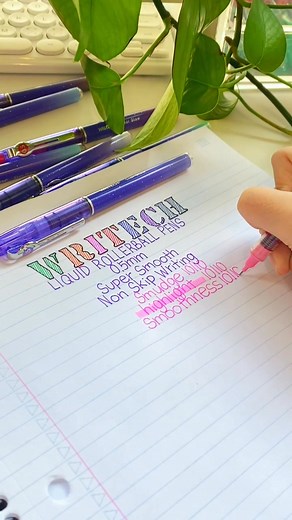 WRITECH
LIQUID ROLLERBALL PENS
0.5mm
Super Smooth
Non Skip Writing
Smudge 10/10
highlight 10/10
Smoothness 10/10